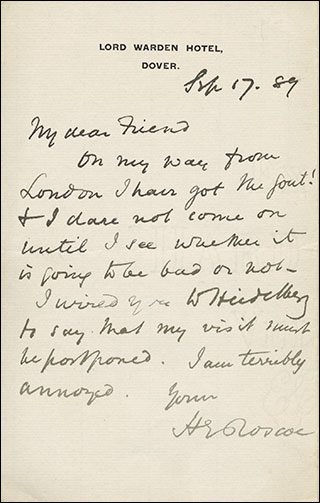 LORD WARDEN HOTEL,
DOVER.
Sep 17. 89
My dear Friend
On my way from
London I have got the gout!
& I dare not come on
until I see whether it
is going to be bad or not –
I wired you to Heidelberg
to say that my visit must
be postponed. I am terribly
annoyed. Yours
H E Roscoe